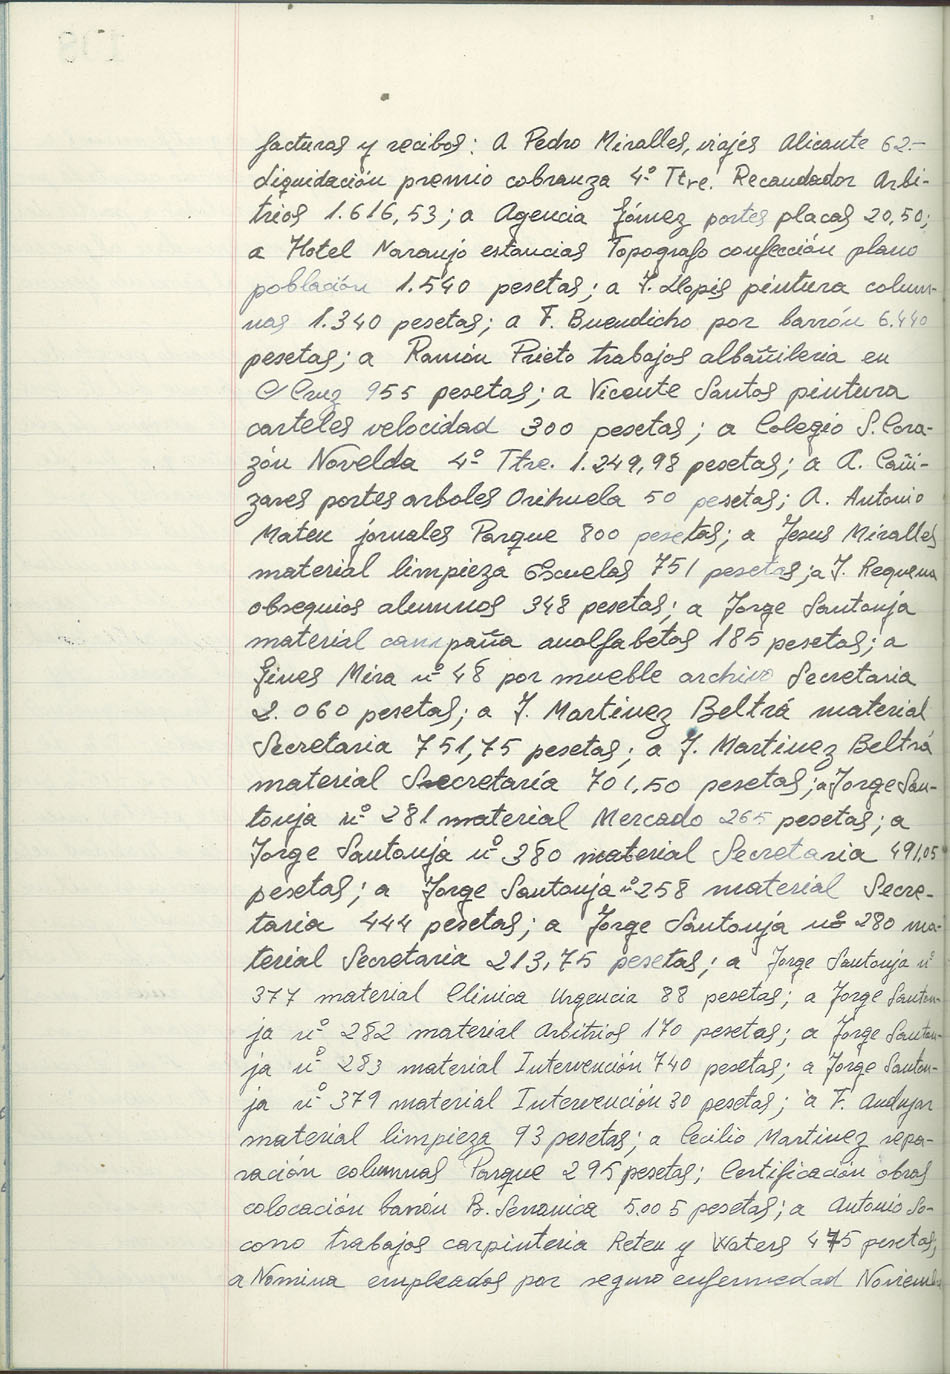 facturas y recibos: A Pedro Miralles, viajes Alicante 62.-
Liquidación premio cobranza 4º Ttre. Recaudador Arbi-
trios 1.616,53; a Agencia Gómez portes placas 20,50;
a Hotel Naranjo estancias Topografo confección plano
población 1.540 pesetas; a J. Llopis pintura colum-
nas 1.340 pesetas; a F. Buendicho por barrón 6.440
pesetas; a Ramón Prieto trabajos albañileria en
C/ Cruz 955 pesetas; a Vicente Santos pintura
carteles velocidad 300 pesetas; a Colegio S. Cora-
zón Novelda 4º Ttre. 1.249,98 pesetas; a A. Cañi-
zares portes arboles Orihuela 50 pesetas; A. Antonio
Mateu jornales Parque 800 pesetas; a Jesus Miralles
material limpieza Escuelas 751 pesetas; a J. Requena
obsequios alumnos 348 pesetas; a Jorge Santonja
material campaña analfabetos 185 pesetas; a
Gines Mira nº 48 por mueble archivo Secretaria
2.060 pesetas; a J. Martinez Beltrá material
Secretaria 751,75 pesetas; a J. Martinez Beltrá
material Secretaría 701,50 pesetas; a Jorge San-
tonja nº 281 material Mercado 265 pesetas; a
Jorge Santonja nº 380 material Secretaria 491,05
pesetas; a Jorge Santonja nº 258 material Secre-
taria 444 pesetas; a Jorge Santonja nº 280 ma-
terial Secretaria 213,75 pesetas; a Jorge Santonja nº
377 material Clinica Urgencia 88 pesetas; a Jorge Santon-
ja nº 282 material Arbitrios 170 pesetas; a Jorge Santon-
ja nº 283 material Intervención 740 pesetas; a Jorge Santon-
ja nº 379 material Intervención 30 pesetas; a F. Andujar
material limpieza 93 pesetas; a Cecilio Martinez repa-
ración columnas Parque 295 pesetas; Certificación obras
colocación barrón B. Serranica 5.005 pesetas; a Antonio So-
cono trabajos carpinteria Reten y Waters 475 pesetas,
a Nomina empleados por seguro enfermedad Noviem